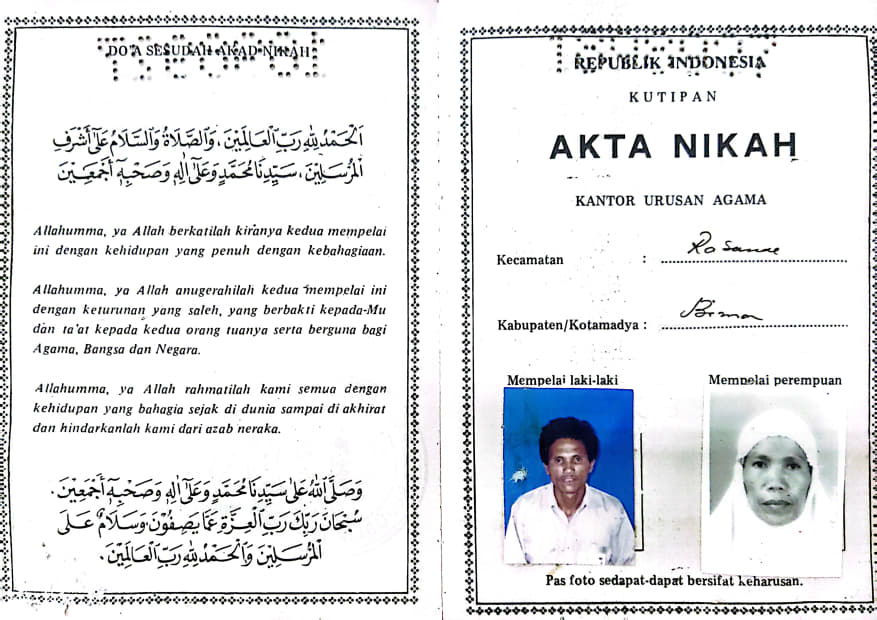 DO'A SESUDAH AKAD NIKAH
اَلْحَمْدُ لِلّٰهِ رَبِّ الْعَالَمِيْنَ، وَالصَّلَاةُ وَالسَّلَامُ عَلَى أَشْرَفِ
الْمُرْسَلِيْنَ، سَيِّدِنَا مُحَمَّدٍ وَعَلَى اٰلِهِ وَصَحْبِهِ أَجْمَعِيْنَ
Allahumma, ya Allah berkatilah kiranya kedua mempelai
ini dengan kehidupan yang penuh dengan kebahagiaan.
Allahumma, ya Allah anugerahilah kedua mempelai ini
dengan keturunan yang saleh, yang berbakti kepada-Mu
dan ta'at kepada kedua orang tuanya serta berguna bagi
Agama, Bangsa dan Negara.
Allahumma, ya Allah rahmatilah kami semua dengan
kehidupan yang bahagia sejak di dunia sampai di akhirat
dan hindarkanlah kami dari azab neraka.
وَصَلَّى اللّٰهُ عَلَى سَيِّدِنَا مُحَمَّدٍ وَعَلَى اٰلِهِ وَصَحْبِهِ أَجْمَعِيْنَ.
سُبْحَانَ رَبِّكَ رَبِّ الْعِزَّةِ عَمَّا يَصِفُوْنَ وَسَلَامٌ عَلَى
الْمُرْسَلِيْنَ وَالْحَمْدُ لِلّٰهِ رَبِّ الْعَالَمِيْنَ.
REPUBLIK INDONESIA
KUTIPAN
AKTA NIKAH
KANTOR URUSAN AGAMA
Kecamatan :
Kabupaten/Kotamadya :
Mempelai laki-laki
Mempelai perempuan
Pas foto sedapat-dapat bersifat keharusan.